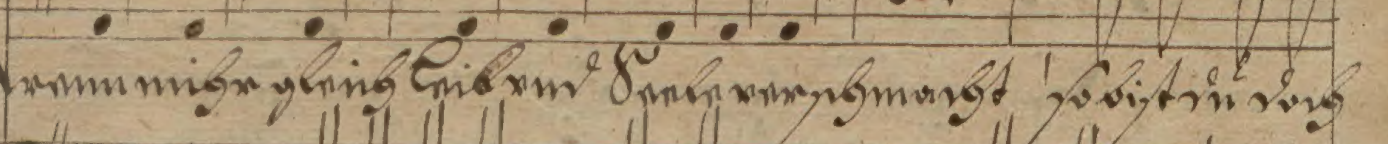 wenn mihr gleich Leib vnd Seele verschmacht so bist du doch